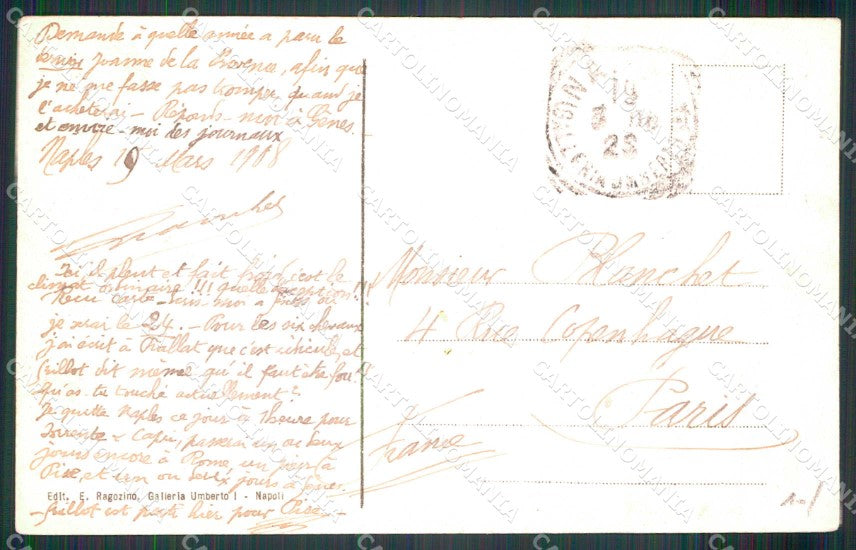 Demande à quelle année a paru le
dernier Joanne de la Provence, afin que
je ne me fasse pas tromper quand je
l'acheterai - Réponds-moi à Gênes.
et envoie-moi les journaux
Naples 19 Mars 1908
Blanchet
Ici il pleut et fait froid, c'est le
climat ordinaire !!! quelle déception !!!
Reçu carte - Ecris-moi à Gênes où
je serai le 24. - Pour les six chevaux
j'ai écrit à que c'est ridicule, et
Guillot dit même qu'il faut être fou !!
Qu'as-tu touché actuellement ?
Je quitte Naples ce jour à 1 heure pour
Sorrente & Capri, passerai un ou deux
jours encore à Rome, un jour à
Pise, et un ou deux jours à Gênes.
Edit. E. Ragozino, Galleria Umberto I - Napoli
- Guillot est parti hier pour Pise -
19
3
Monsieur Blanchet
4 Rue Copenhague
Paris
France
CARTOLINOMANIA